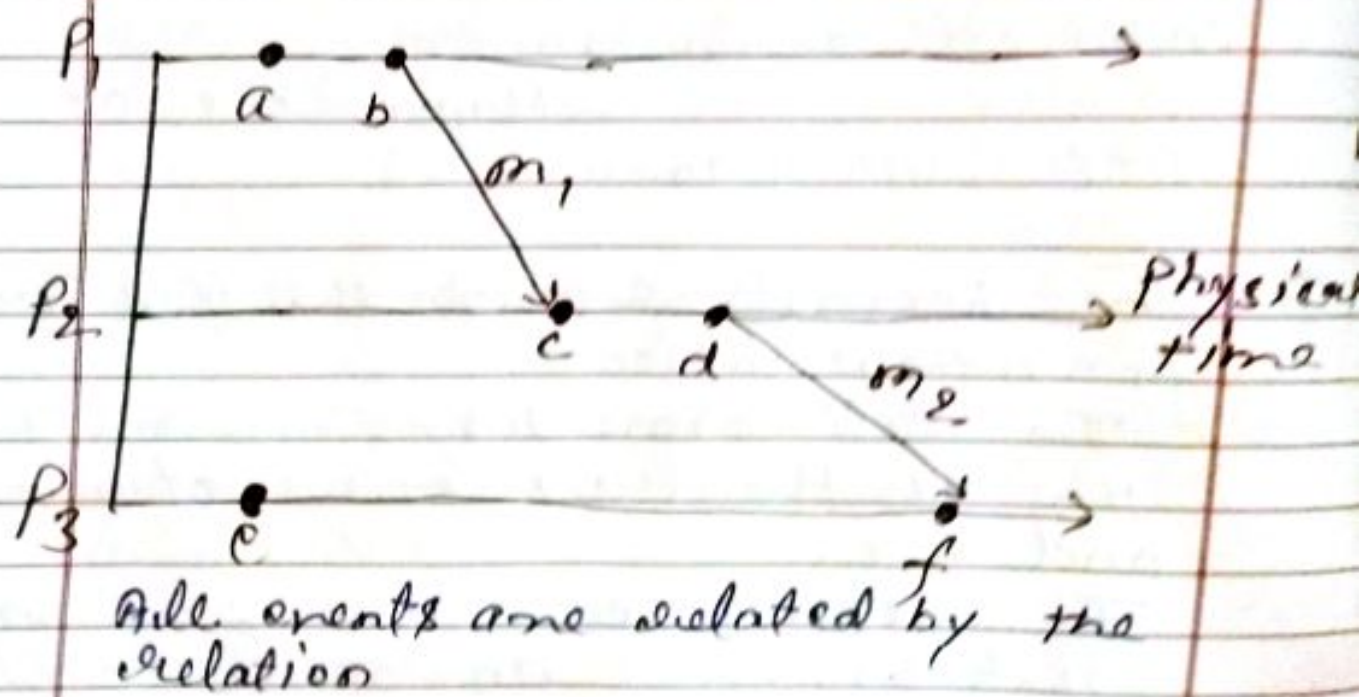 P1
a b
m1
P2
c d
Physical
time
m2
P3
e
f
All events are related by the
relation